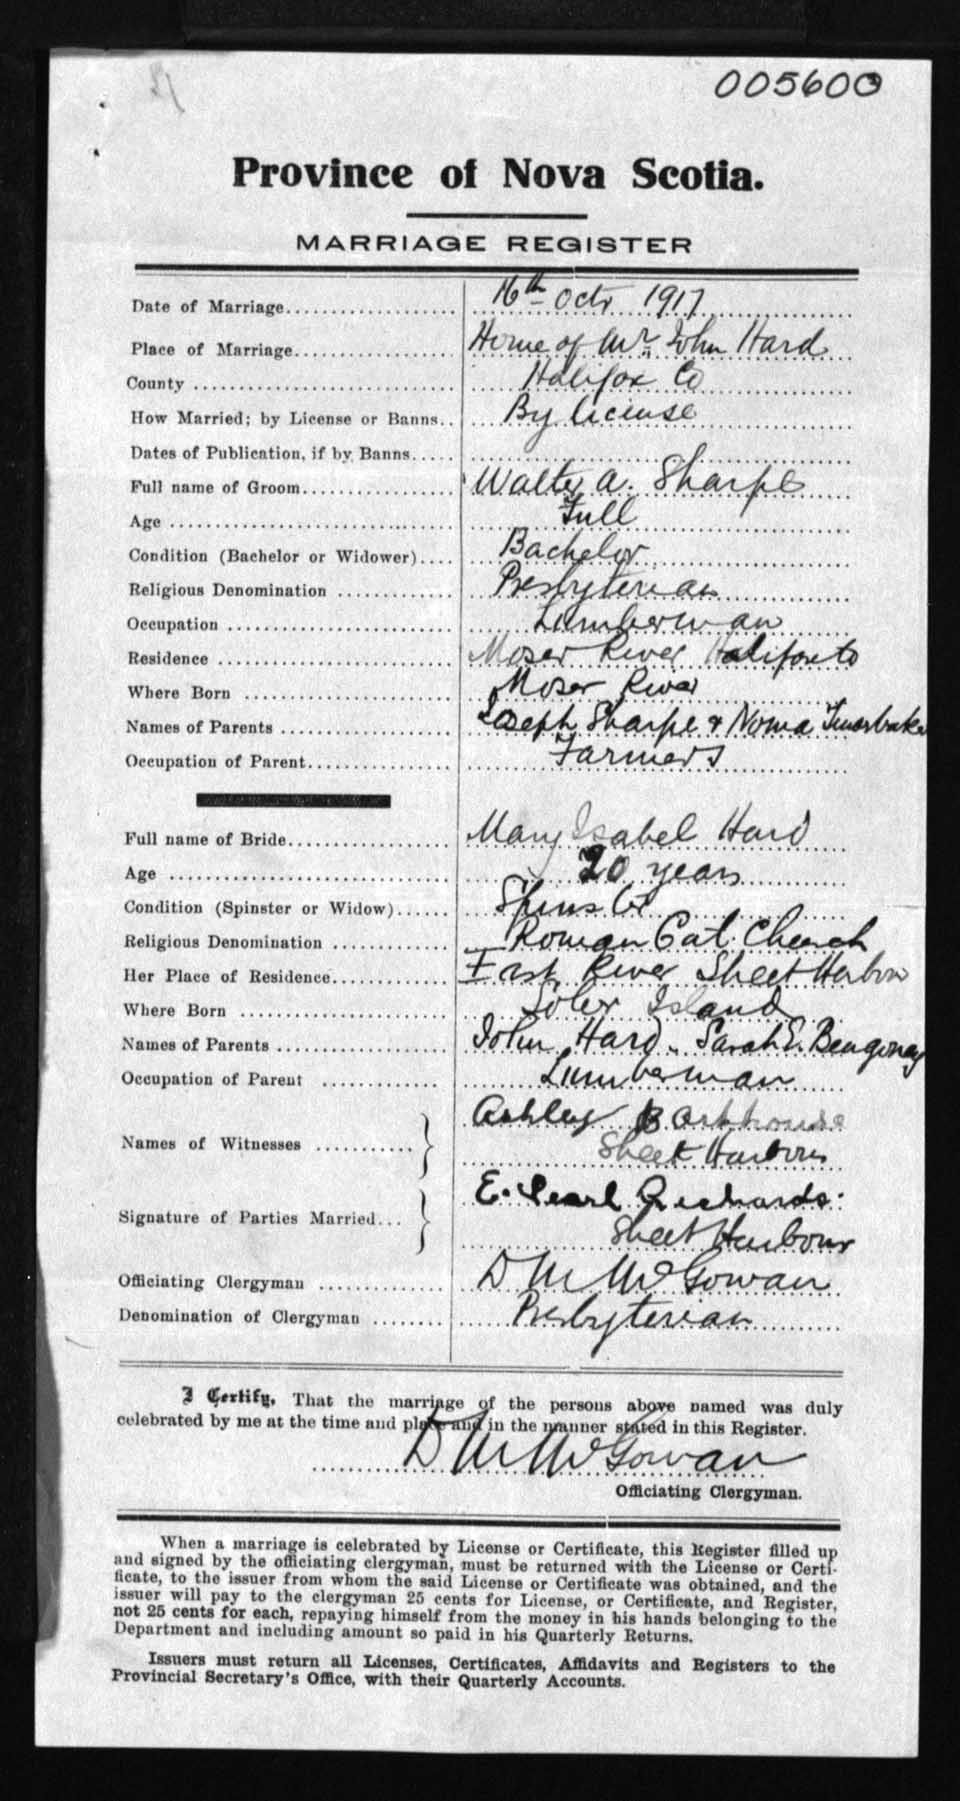 005600
Province of Nova Scotia.
MARRIAGE REGISTER
Date of Marriage 16th Octr 1917
Place of Marriage Home of Mr John Hard
County Halifax Co
How Married; by License or Banns By license
Dates of Publication, if by Banns
Full name of Groom Walter A. Sharpe
Age Full
Condition (Bachelor or Widower) Bachelor
Religious Denomination Presbyterian
Occupation Lumberman
Residence Moser River Halifax Co
Where Born Moser River
Names of Parents Joseph Sharpe & Noma
Occupation of Parent Farmers
Full name of Bride Mary Isabel Hard
Age 20 years
Condition (Spinster or Widow) Spinster
Religious Denomination Roman Cat. Church
Her Place of Residence East River Sheet Harbor
Where Born Sober Island
Names of Parents John Hard Sarah E.
Occupation of Parent Lumberman
Names of Witnesses Ashley Barkhouse
Sheet Harbour
Signature of Parties Married E. Pearl Richards.
Sheet Harbour
Officiating Clergyman D M McGowan
Denomination of Clergyman Presbyterian
I Certify, That the marriage of the persons above named was duly
celebrated by me at the time and place and in the manner stated in this Register.
D M McGowan
Officiating Clergyman.
When a marriage is celebrated by License or Certificate, this Register filled up
and signed by the officiating clergyman, must be returned with the License or Certi-
ficate, to the issuer from whom the said License or Certificate was obtained, and the
issuer will pay to the clergyman 25 cents for License, or Certificate, and Register,
not 25 cents for each, repaying himself from the money in his hands belonging to the
Department and including amount so paid in his Quarterly Returns.
Issuers must return all Licenses, Certificates, Affidavits and Registers to the
Provincial Secretary's Office, with their Quarterly Accounts.